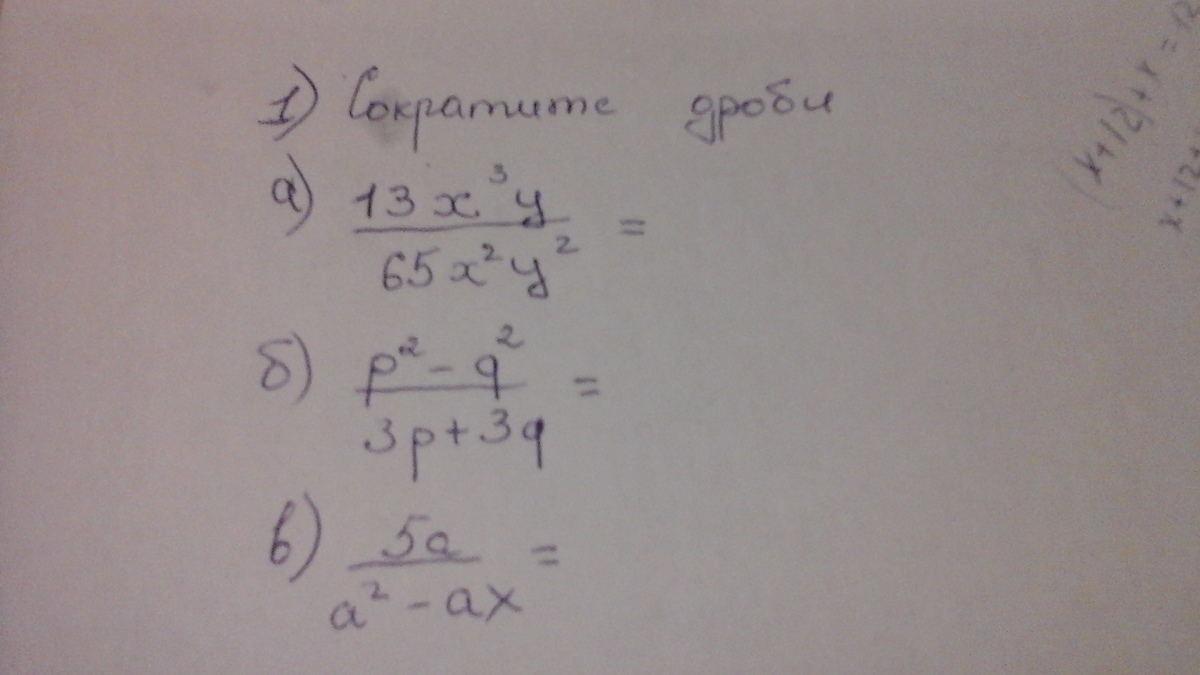 1) Сократите дроби
а) 13x³y / 65x²y² =
б) p² - q² / 3p + 3q =
в) 5a / a² - ax =
(x+12)+x = 12
x+12+